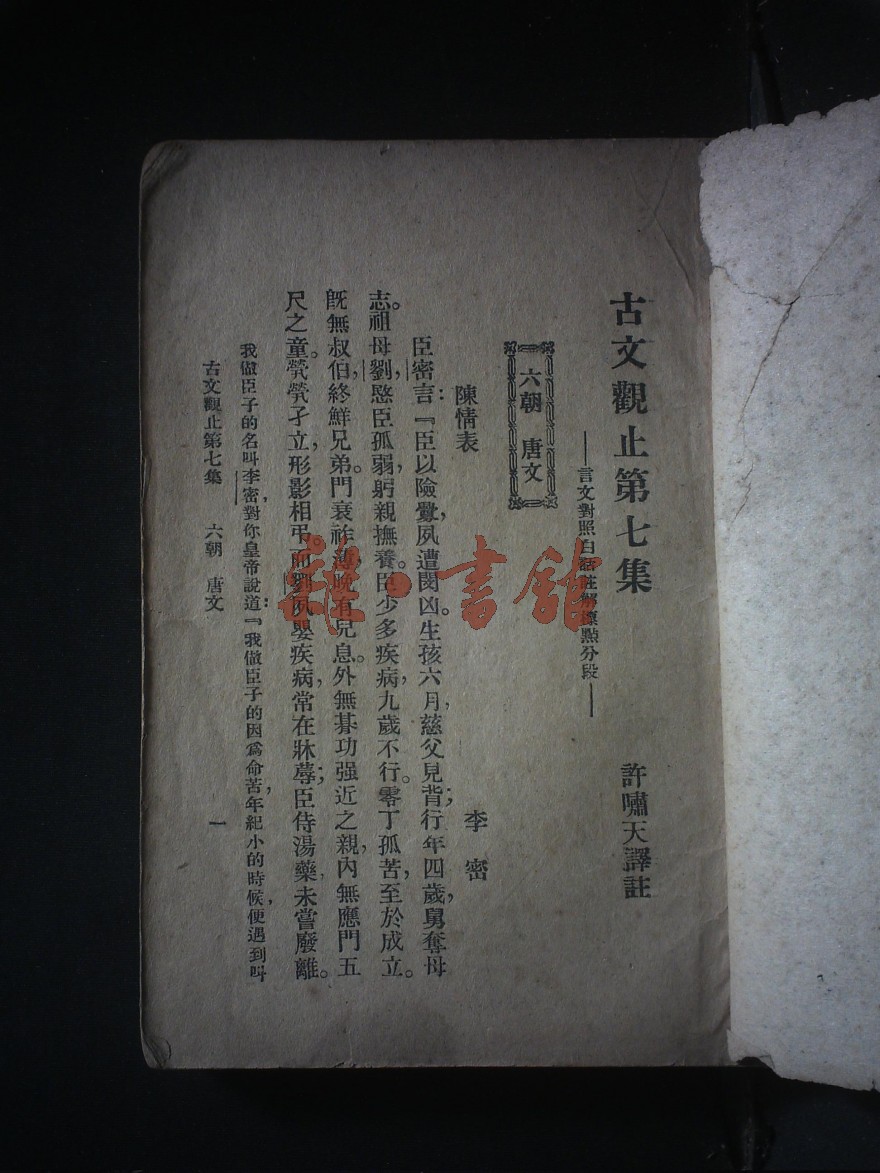 古文觀止第七集
許嘯天譯註
——言文對照白話註解標點分段——
六朝 唐文
陳情表
李密
臣密言：『臣以險釁，夙遭閔凶。生孩六月，慈父見背；行年四歲，舅奪母
志。祖母劉，愍臣孤弱，躬親撫養。臣少多疾病，九歲不行。零丁孤苦，至於成立。
旣無叔伯，終鮮兄弟。門衰祚薄，晚有兒息。外無朞功强近之親，內無應門五
尺之童。煢煢孑立，形影相弔。而劉夙嬰疾病，常在牀蓐；臣侍湯藥，未嘗廢離。
我做臣子的名叫李密，對你皇帝說道：『我做臣子的因爲命苦，年紀小的時候，便遇到叫
古文觀止第七集 六朝 唐文
一
雜·書館